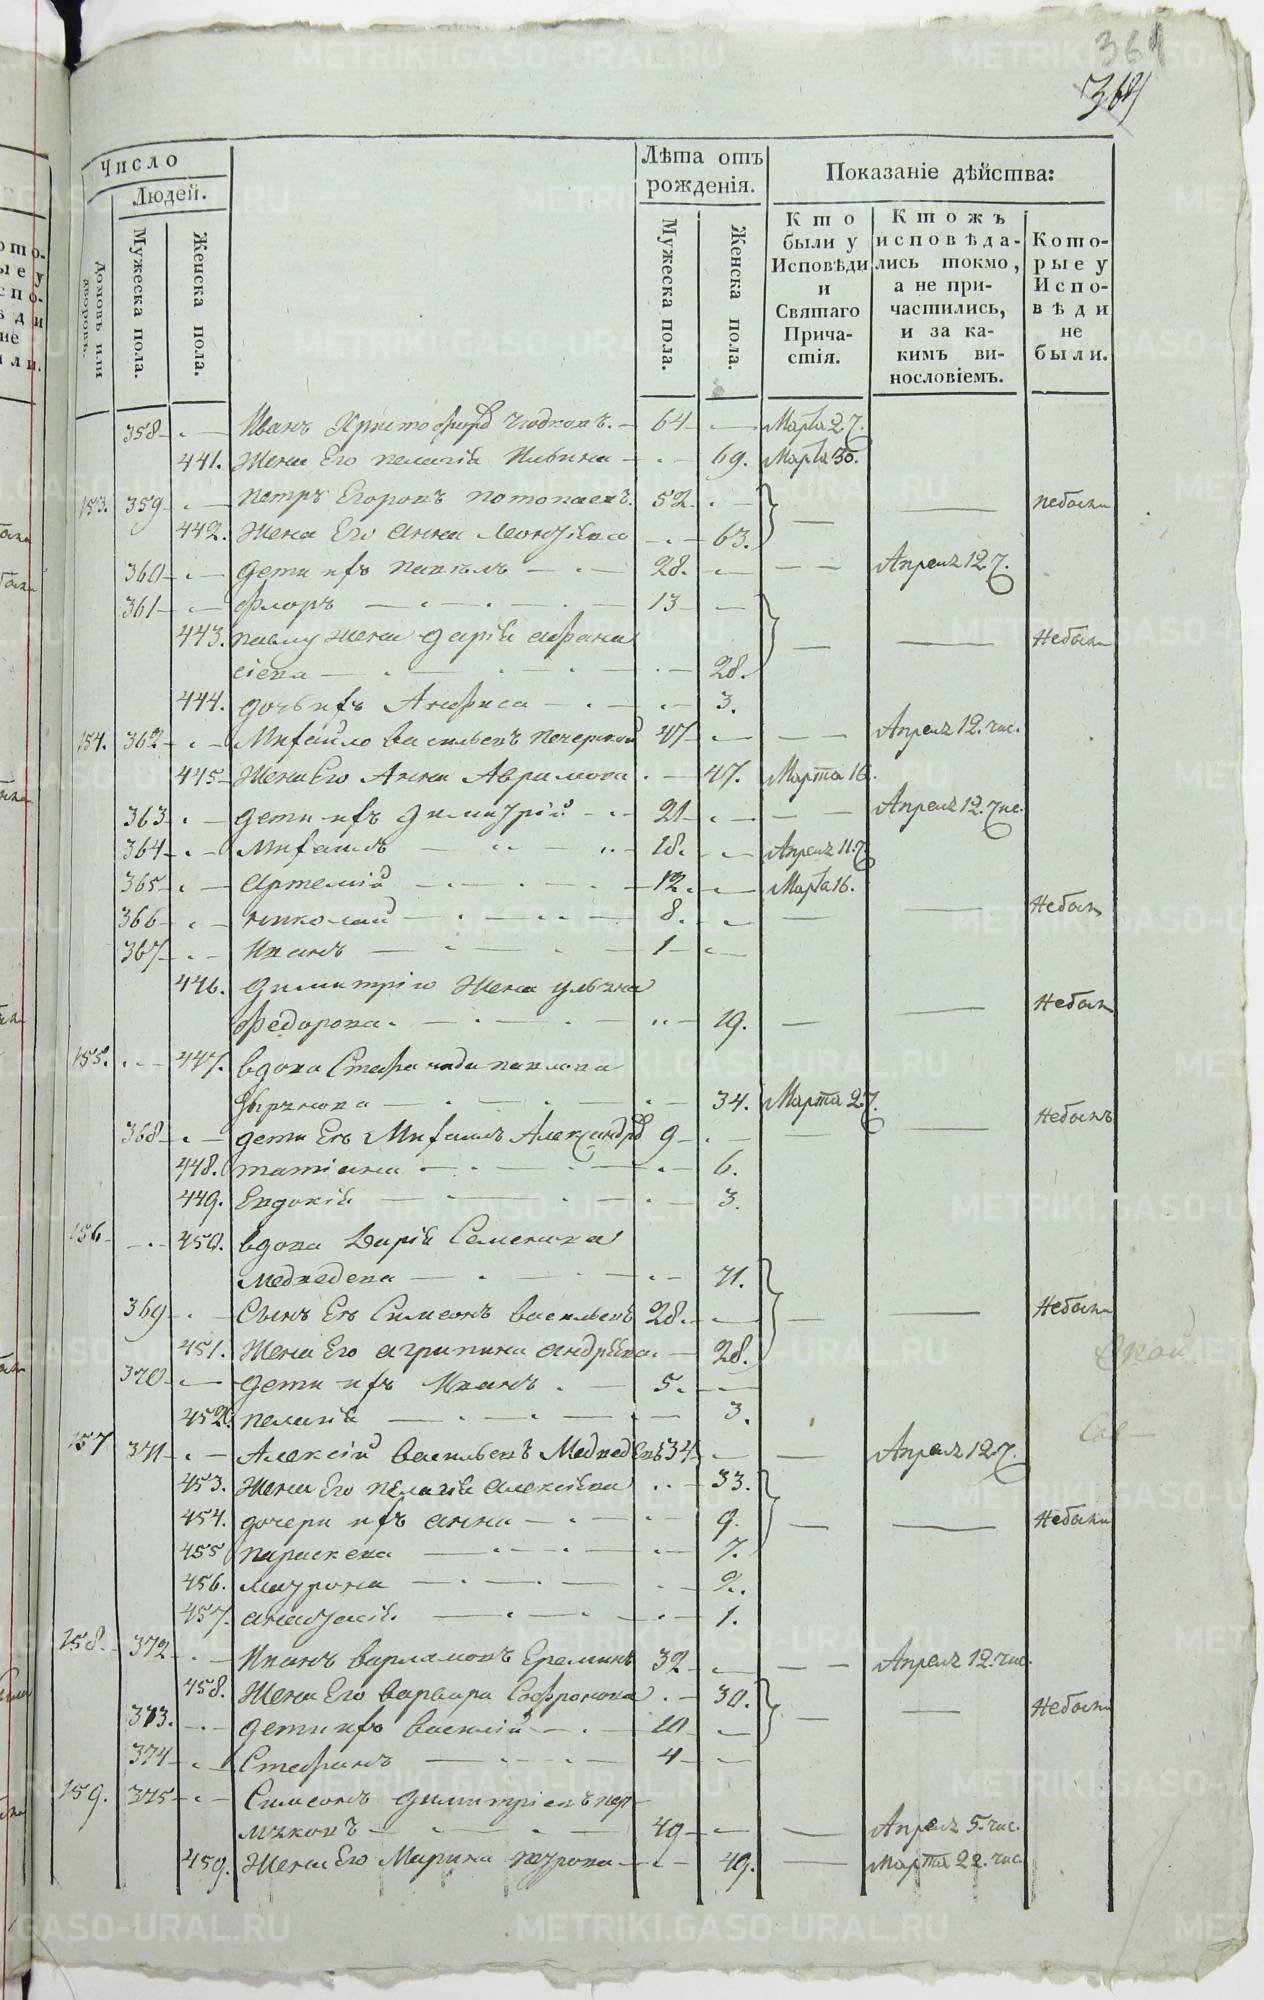 364
364
Число
Людей.
Домовъ или дворовъ.
Мужеска пола.
Женска пола.
Лѣта отъ рожденія.
Мужеска пола.
Женска пола.
Показаніе дѣйства:
Кто были у Исповѣди и Святаго Причастія.
Ктожъ исповѣдались токмо, а не причастились, и за какимъ винословіемъ.
Которые у Исповѣди не были.
358 Иванъ Христофоровъ 64 Марта 27.
441. Жена Его Пелагія Ильина 69. Марта 30.
153. 359 Петръ Егоровъ Потопаевъ 52. Небыли
442. Жена Его Анна Леонтіева 63.
360 дети ихъ Павелъ 28. Апреля 12 ч.
361 Флоръ 13
443. Павлу жена дарія Афана
сіева 28. Небыли
444. дочь ихъ Анфиса 3.
154. 362 Михайло Васильевъ Печерской 47 Апреля 12. чис.
445 Жена Его Анна Аврамова 47. Марта 16.
363 дети ихъ димитрій 21 Апреля 12. чис.
364 Михаилъ 18. Апреля 11 ч
365 Артемій 12. Марта 16.
366 Николай 8. Небыли
367 Иванъ 1
446. димитрію жена ульяна
Федорова. 19. Небыли
155. 447. вдова Стефанида Павлова
Зырянова 34. Марта 27.
368 дети Ея Михаилъ Александровъ 9 Небылъ
448. татіана 6.
449. Евдокія 3.
156 450. вдова Дарія Семенова
Медведева 71.
369 Сынъ Ея Симеонъ Васильевъ 28. Небыли
451. Жена Его агрипина андреева 28.
370 дети ихъ Иванъ 5.
452. пелагія 3.
157 371 Алексій Васильевъ Медведевъ 34 Апреля 12 ч.
453. Жена Его пелагія алексіева 33.
454. дочери ихъ анна 9. Небыли
455 параскева 7.
456. Матрона 2.
457. анастасія 1.
158. 372 Иванъ Варламовъ Ереминъ 32 Апреля 12. чис.
458. Жена Его Варвара Софронова 30. Небыли
373. дети ихъ Василій 10
374 Стефанъ 4
159. 375 Симеонъ димитріевъ пер
мяковъ 49 Апреля 5. чис.
459. Жена Его Марина Петрова 49. Марта 22. чис.